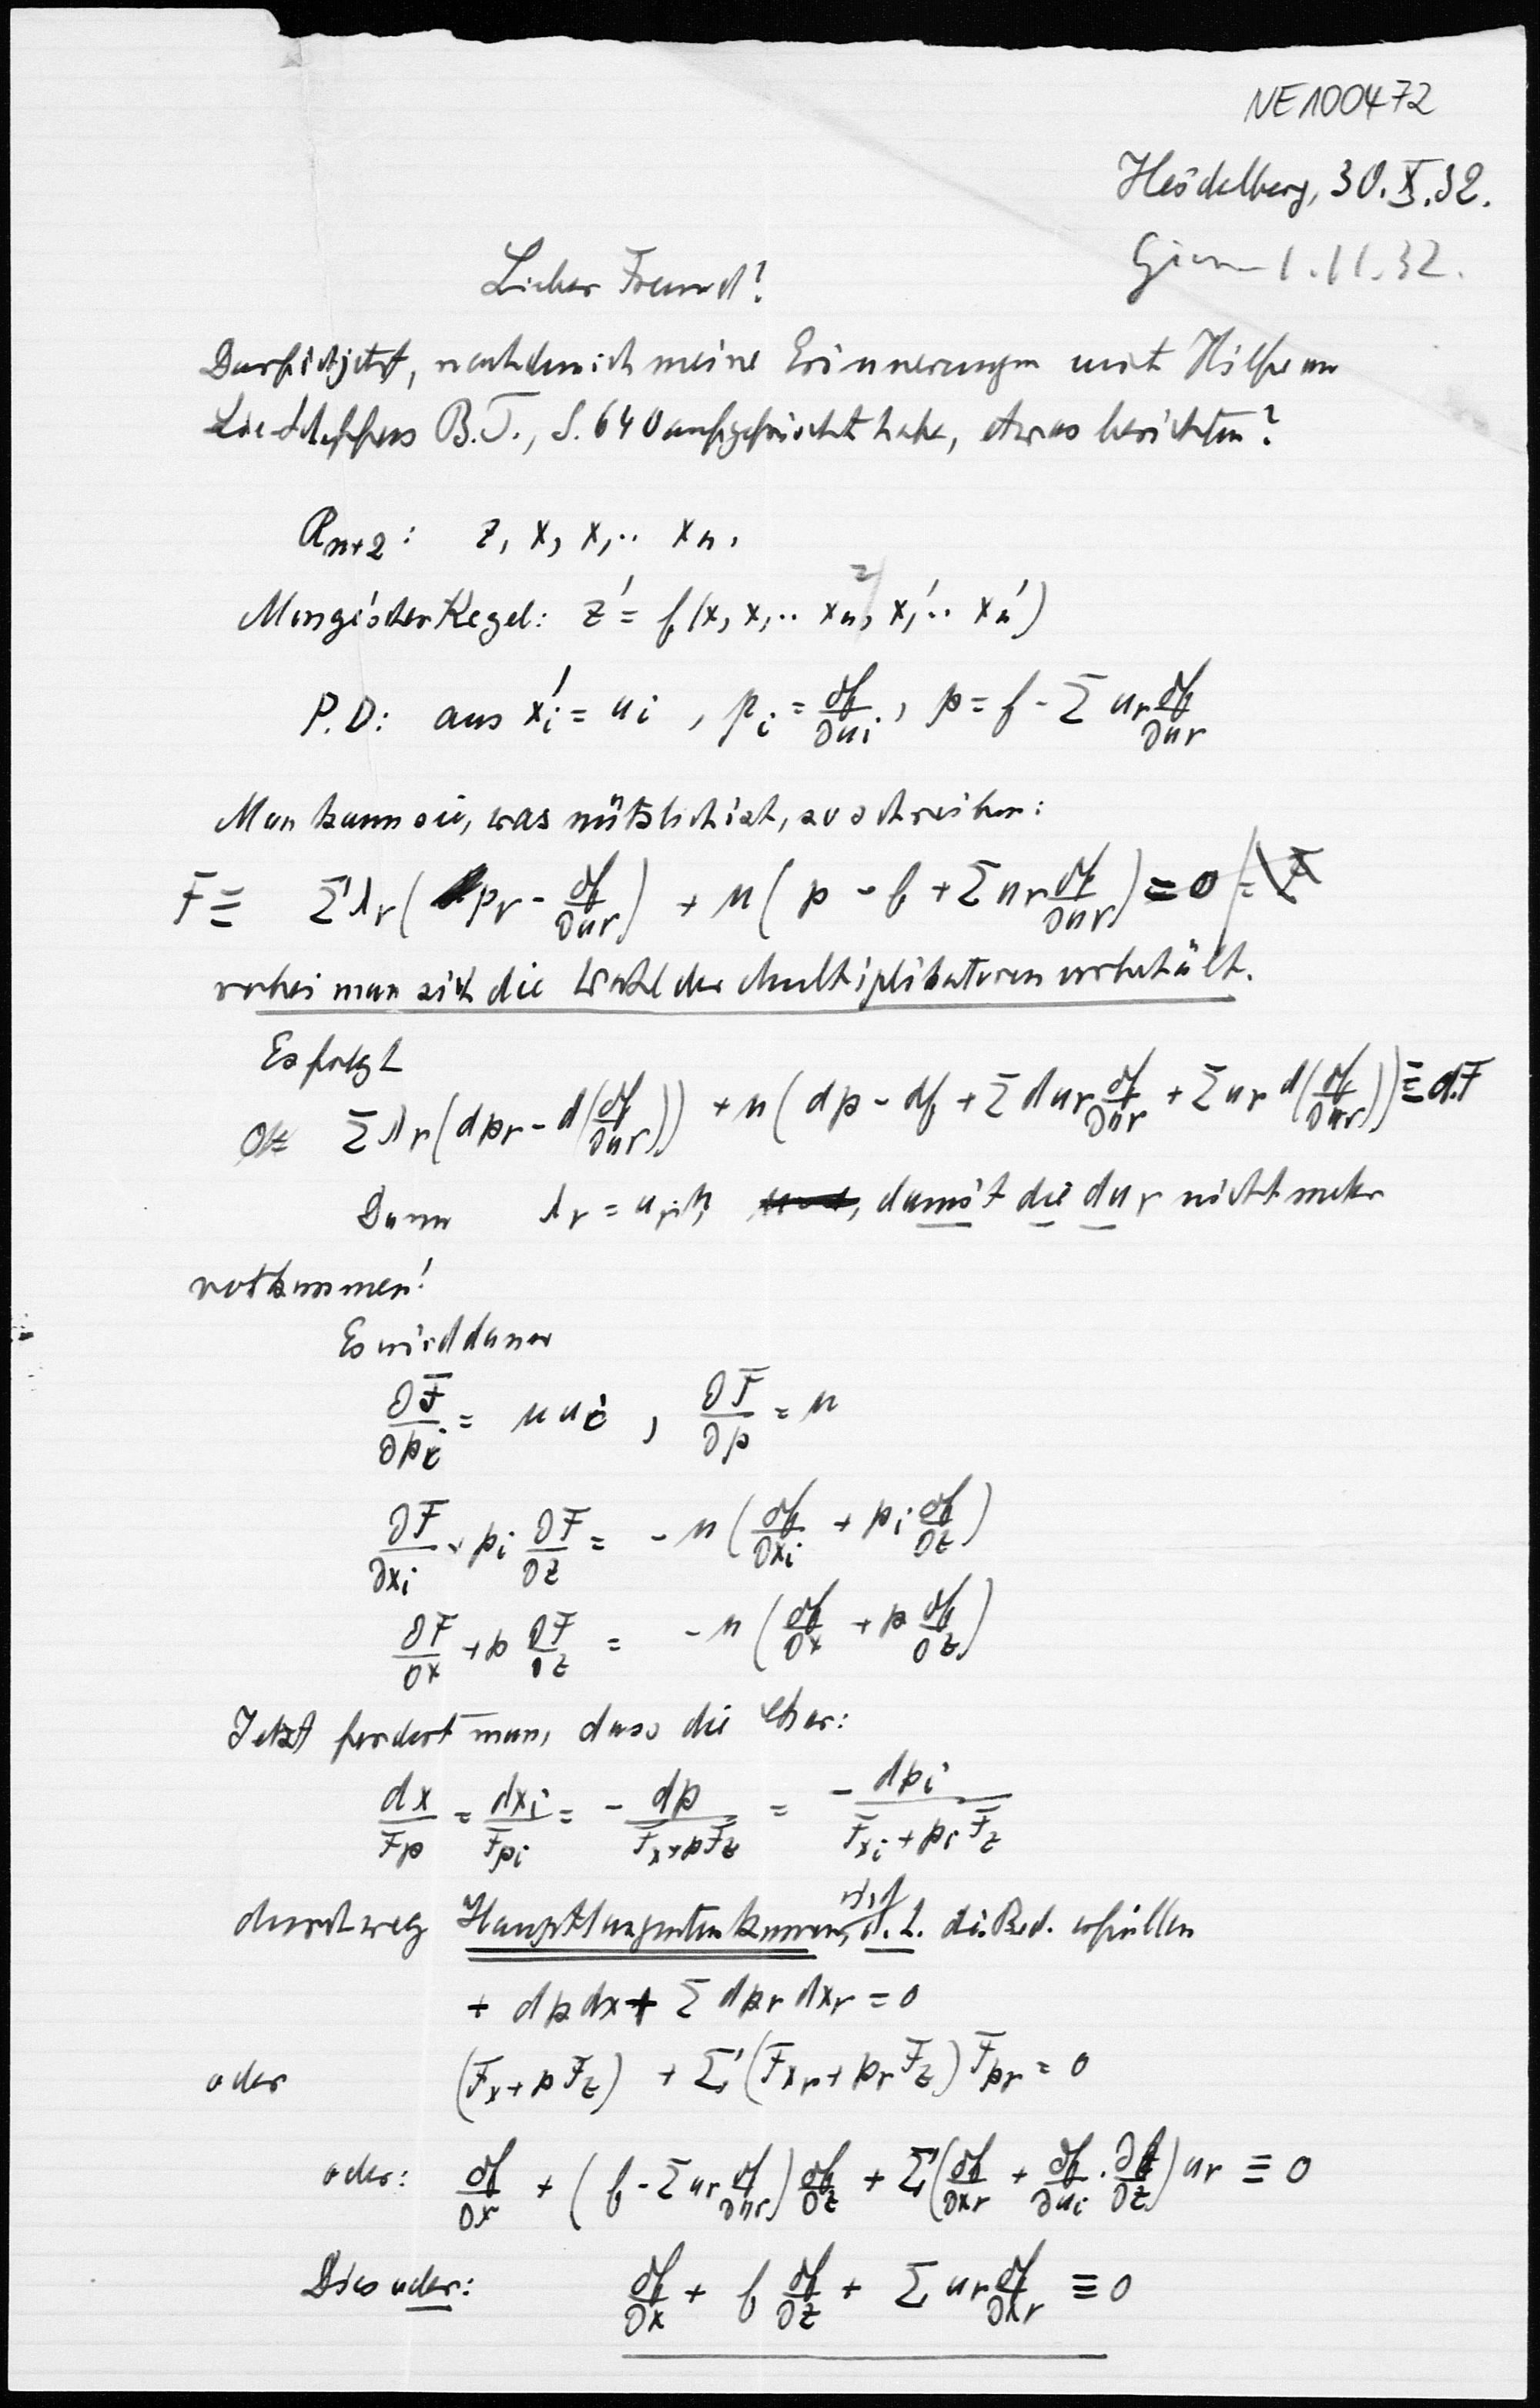 NE100472
Heidelberg, 30.X.32.
1.11.32.
Lieber Freund!
Darf ich jetzt, nachdem ich meine Erinnerungen mit Hilfe von
Lie-Scheffers B.T., S. 640 aufgefrischt habe, etwas berichten?
R_{n+2}: z, x, x, .. x_n.
Mongescher Kegel: z' = f(x, x, .. x_n, z, x', .. x_n')
P.D: aus x_i' = u_i, p_i = ∂f/∂u_i, p = f - Σ u_r ∂f/∂u_r
Man kann sie, was nützlich ist, so schreiben:
F ≡ Σ λ_r (p_r - ∂f/∂u_r) + μ (p - f + Σ u_r ∂f/∂u_r) = 0
wobei man sich die Wahl der Multiplikatoren vorbehält.
Es folgt
0 = Σ λ_r (dp_r - d(∂f/∂u_r)) + μ (dp - df + Σ du_r ∂f/∂u_r + Σ u_r d(∂f/∂u_r)) ≡ dF
Dann λ_r = u_r μ, damit die du_r nicht mehr
vorkommen!
Es wird dann
∂F/∂p_i = μ u_i, ∂F/∂p = μ
∂F/∂x_i + p_i ∂F/∂z = - μ (∂f/∂x_i + p_i ∂f/∂z)
∂F/∂x + p ∂F/∂z = - μ (∂f/∂x + p ∂f/∂z)
Jetzt fordert man, dass die Char:
dx/F_p = dx_i/F_{p_i} = - dp/(F_x + p F_z) = - dp_i/(F_{x_i} + p_i F_z)
durchweg Haupttangentenkurven sind, d.h. die Bed. erfüllen
+ dp dx + Σ dp_r dx_r = 0
oder (F_x + p F_z) + Σ (F_{x_r} + p_r F_z) F_{p_r} = 0
oder: ∂f/∂x + (f - Σ u_r ∂f/∂u_r) ∂f/∂z + Σ (∂f/∂x_r + ∂f/∂u_i · ∂f/∂z) u_r ≡ 0
Dies oder: ∂f/∂x + f ∂f/∂z + Σ u_r ∂f/∂x_r ≡ 0